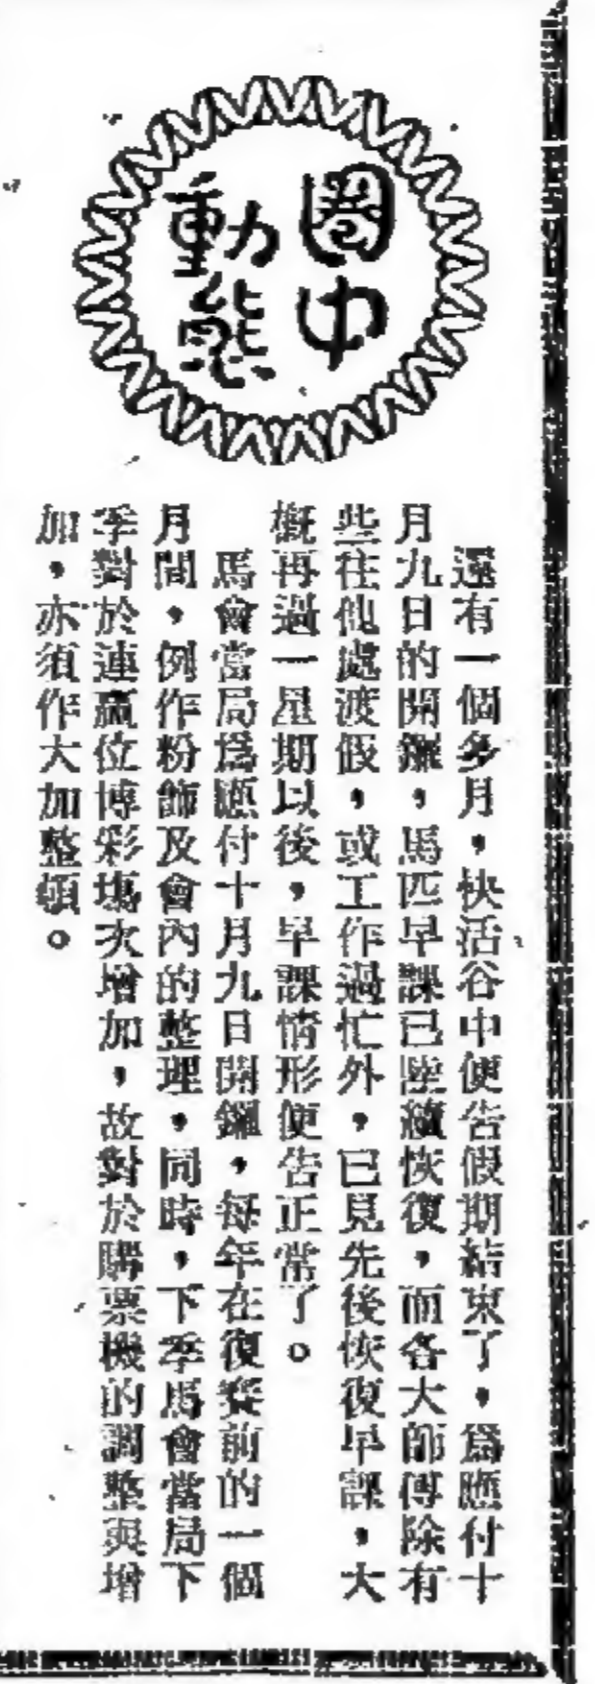 圈中
動態
還有一個多月，快活谷中便告假期結束了，爲應付十
月九日的開鑼，馬匹早課已陸續恢復，而各大師傅除有
些往他處渡假，或工作過忙外，已見先後恢復早課，大
概再過一星期以後，早課情形便告正常了。
馬會當局爲應付十月九日開鑼，每年在復賽前的一個
月間，例作粉飾及會內的整理，同時，下季馬會當局下
季對於連贏位博彩場次增加，故對於購票機的調整與增
加，亦須作大加整頓。